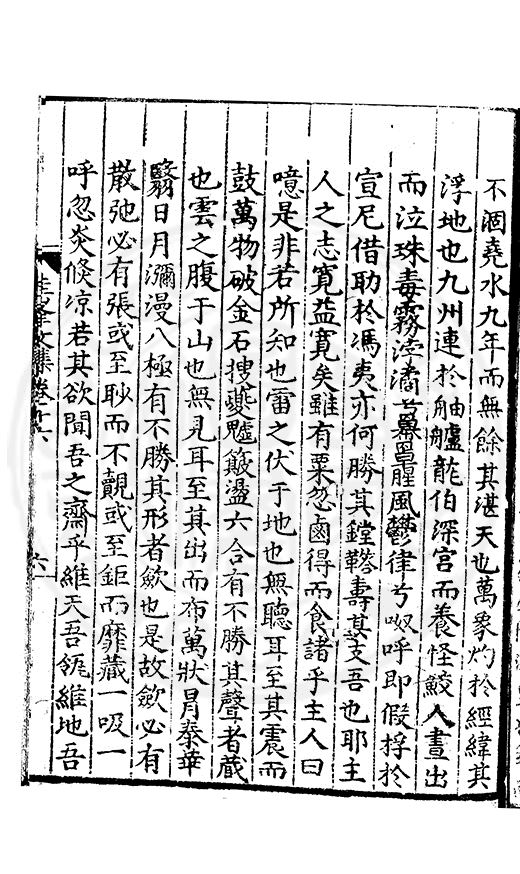 不涸堯水九年而無餘其湛天也萬象灼於經緯其
浮地也九州連於舳艫龍伯深宮而養怪鮫人晝出
而泣珠毒霧涬潏兮黿鼉腥風鬱律兮呶呼即假桴於
宣尼借助於馮夷亦何勝其鏜鞳壽其支吾也耶主
人之志寬益寬矣雖有粟忽鹵得而食諸乎主人曰
噫是非若所知也雷之伏于地也無聽耳至其震而
鼓萬物破金石摗夔魖簸盪六合有不勝其聲者蔵
也雲之腹于山也無見耳至其出而布萬狀罥泰華
翳日月瀰漫八極有不勝其形者歛也是故歛必有
散弛必有張或至眇而不覿或至鉅而靡蔵一吸一
呼忽炎倏凉若其欲聞吾之齋乎維天吾瓴維地吾
峯文集卷十六
六